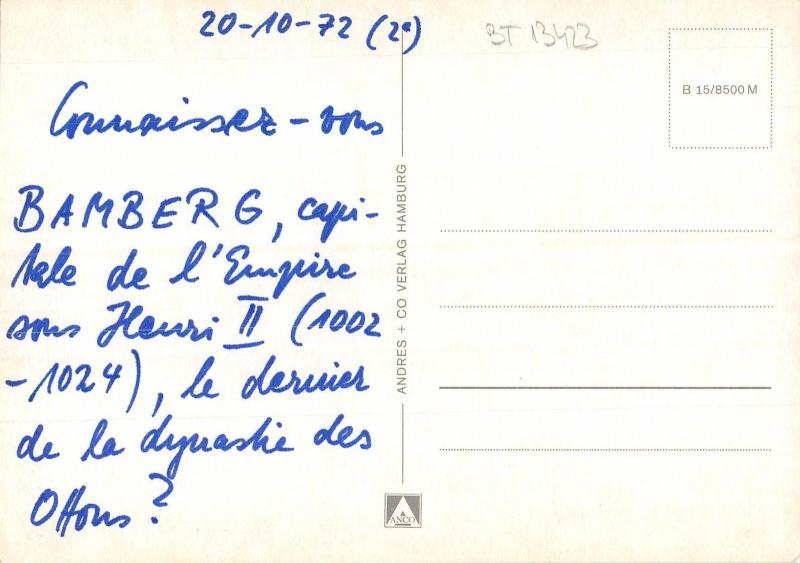 20-10-72 (2e)
BT 13423
B 15/8500 M
Connaissez-vous
BAMBERG, capi-
tale de l'Empire
sous Henri II (1002
-1024), le dernier
de la dynastie des
Ottons?
ANDRES + CO VERLAG HAMBURG
ANCO